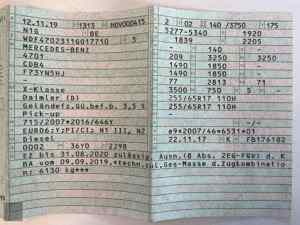 12.11.19 1313 HOVOO0A15
N1G BE
WDF4702311G017710 5
MERCEDES-BENZ
4701
CDB4
F73YN5HJ
X-Klasse
Daimler (D)
Geländefz.Gü.bef.b. 3,5 t
Pick-up
715/2007*2016/646Y
EURO6;Y;PI/CI; N1 III, N2
Diesel
0002 36Y0 2298
EZ bis 31.08.2020 zulässig.
BA vom 09.09.2019.*techn.zul.Ges-Masse d.Zugkombinatio
n: 6130 kg***
2 02 140 /3750 175
5277-5340 1920
1839 2205
- 140 -
209 3250 3250
1490 1850 -
1490 1850 -
77 2813 71
3500 750 5 -
255/65R17 110H
255/65R17 110H
-
e9*2007/46*6531*01
22.11.17 K FB176102
Ausn.(8 Abs. 2EG-FGV) d. K